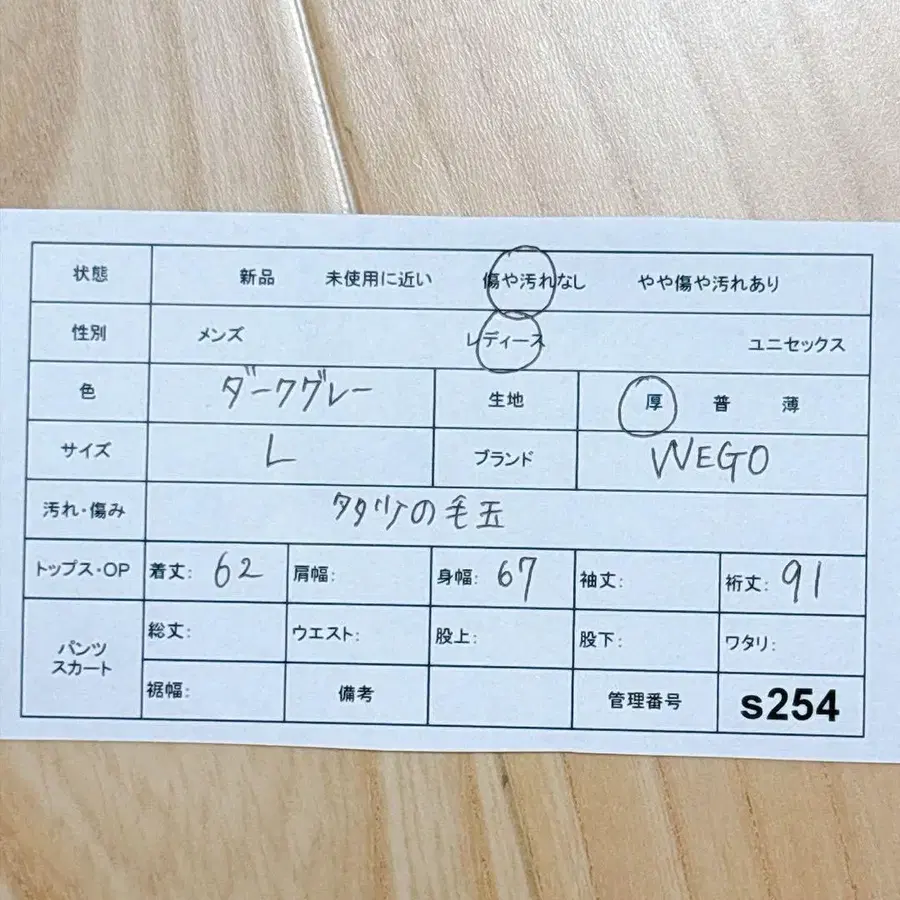 状態 新品 未使用に近い 傷や汚れなし やや傷や汚れあり
性別 メンズ レディース ユニセックス
色 ダークグレー 生地 厚 普 薄
サイズ L ブランド WEGO
汚れ・傷み の毛玉
トップス・OP 着丈: 62 肩幅: 身幅: 67 袖丈: 裄丈: 91
パンツ スカート 総丈: ウエスト: 股上: 股下: ワタリ:
裾幅: 備考 管理番号 s254